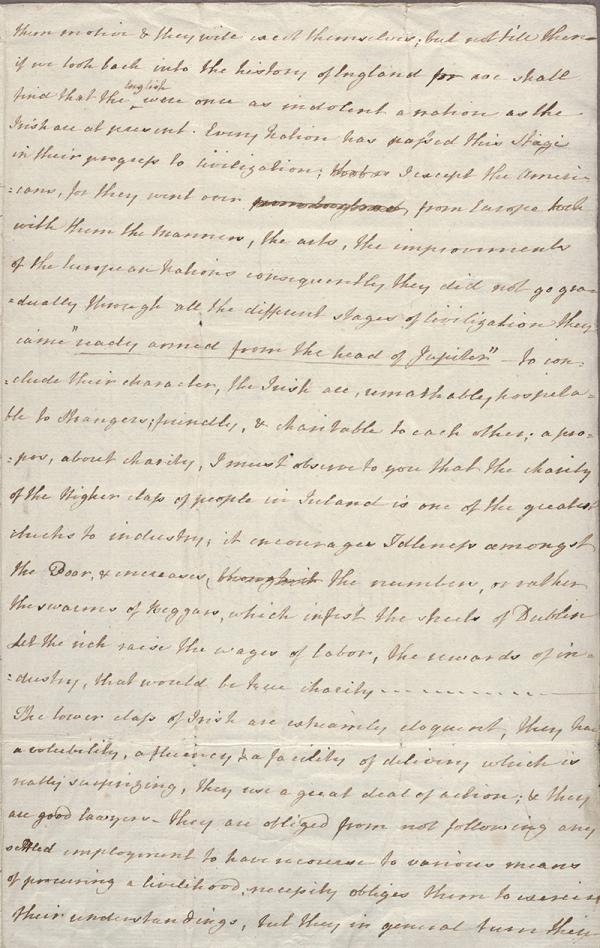 them motive & they will exert themselves; but not till then
if we look back into the history of England for we shall
find that the english were once as indolent a nation as the
Irish are at present. Every Nation has passed this Stage
in their progress to civilization; I except the Ameri-
=cans, for they went over from Europe took
with them the manners, the arts, the improvements
of the European Nations consequently they did not go gra-
=dually through all the different stages of civilization they
came "ready armed from the head of Jupiter" - to con-
=clude their character, the Irish are, remarkably hospita-
ble to Strangers; friendly, & charitable to each other; a pro-
=pos, about charity, I must observe to you that the charity
of the Higher class of people in Ireland is one of the greatest
checks to industry; it encourages Idleness amongst
the Poor, & increases, the numbers, or rather
the swarms of Beggars, which infest the streets of Dublin
Let the rich raise the wages of labor, the rewards of in-
=dustry, that would be true charity
The lower class of Irish are extreamly eloquent, they have
a volubility, a fluency & a facility of delivery which is
really surprizing, they use a great deal of action; & they
are good lawyers - they are obliged from not following any
settled employment to have recourse to various means
of procuring a livelihood, necessity obliges them to exercise
their understandings, but they in general turn their